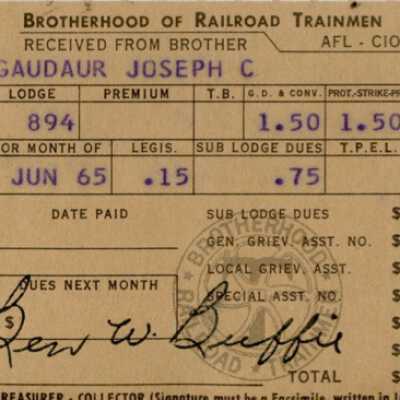 BROTHERHOOD OF RAILROAD TRAINMEN
RECEIVED FROM BROTHER AFL - CIO
GAUDAUR JOSEPH C
LODGE PREMIUM T.B. G.D. & CONV. PROT.-STRIKE-PR
894 1.50 1.50
OR MONTH OF LEGIS. SUB LODGE DUES T.P.E.L.
JUN 65 .15 .75
DATE PAID SUB LODGE DUES $
GEN. GRIEV. ASST. NO. $
LOCAL GRIEV. ASST. $
DUES NEXT MONTH SPECIAL ASST. NO. $
$ $
Ben W. Buffie
TOTAL $
TREASURER - COLLECTOR (Signature must be a Facsimile, written in I
BROTHERHOOD
RAILROAD TRAINMEN